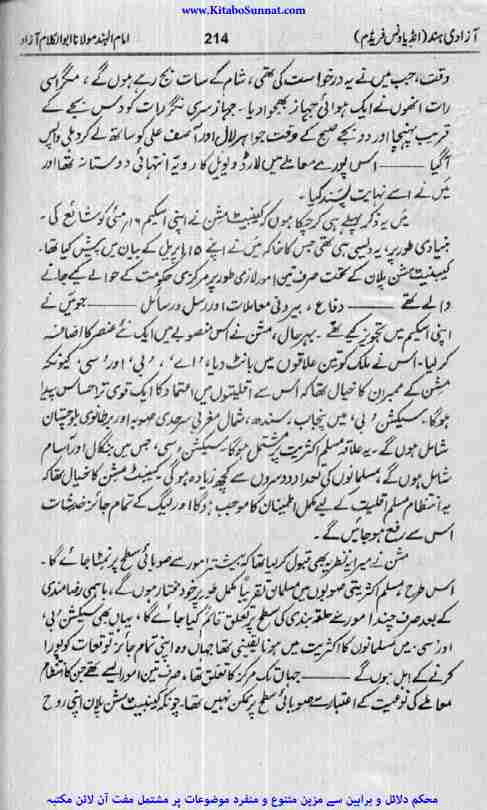 www.KitaboSunnat.com
آزادیٔ ہند (انڈیا ونس فریڈم) 214 امام الہند مولانا ابوالکلام آزاد
وقت، جب میں نے یہ درخواست کی تھی، شام کے سات بج رہے ہوں گے، مگر اسی
رات انھوں نے ایک ہوائی جہاز بھجوا دیا۔ جہاز سری نگر رات کو دس بجے کے
قریب پہنچا اور دو بجے صبح کے وقت جواہر لال اور آصف علی کو ساتھ لے کر دہلی واپس
آگیا ——— اس پورے معاملے میں لارڈ ویول کا رویہ انتہائی دوستانہ تھا اور
میں نے اسے نہایت پسند کیا۔
میں یہ ذکر پہلے ہی کر چکا ہوں کہ کیبنٹ مشن نے اپنی اسکیم ۱۶؍ مئی کو شائع کی۔
بنیادی طور پر، یہ ویسی ہی تھی جس کا خاکہ میں نے اپنے ۱۵؍ اپریل کے بیان میں پیش کیا تھا۔
کیبنٹ مشن پلان کے تحت صرف تین امور لازمی طور پر مرکزی حکومت کے حوالے کیے جانے
والے تھے ——— دفاع، بیرونی معاملات اور رسل و رسائل ——— جو میں نے
اپنی اسکیم میں تجویز کیے تھے۔ بہرحال، مشن نے اس منصوبے میں ایک نئے عنصر کا اضافہ
کر لیا۔ اس نے ملک کو تین علاقوں میں بانٹ دیا، 'اے'، 'بی' اور 'سی' کیونکہ
مشن کے ممبران کا خیال تھا کہ اس سے اقلیتوں میں اعتماد کا ایک قوی تر احساس پیدا
ہوگا۔ سیکشن 'بی' میں پنجاب، سندھ، شمال مغربی سرحدی صوبہ اور برطانوی بلوچستان
شامل ہوں گے۔ یہ علاقہ مسلم اکثریت پر مشتمل ہوگا۔ سیکشن 'سی' جس میں بنگال اور آسام
شامل ہوں گے، مسلمانوں کی تعداد دوسروں سے کچھ زیادہ ہوگی۔ کیبنٹ مشن کا خیال تھا کہ
یہ انتظام مسلم اقلیت کے لیے مکمل اطمینان کا موجب ہوگا اور لیگ کے تمام جائز خدشات
اس سے رفع ہو جائیں گے۔
مشن نے میرا یہ نظریہ بھی قبول کر لیا تھا کہ بیشتر امور سے صوبائی سطح پر نبٹا جائے گا۔
اس طرح، مسلم اکثریتی صوبوں میں مسلمان تقریباً مکمل طور پر خود مختار ہوں گے، باہمی رضامندی
کے بعد صرف چند امور سے حلقہ بندی کی سطح پر تعلق قائم کیا جائے گا، یہاں بھی سیکشن 'بی'
اور 'سی' میں مسلمانوں کا اکثریت میں ہونا یقینی تھا جہاں وہ اپنی تمام جائز توقعات کو پورا
کرنے کے اہل ہوں گے ——— جہاں تک مرکز کا تعلق تھا، صرف تین امور ایسے تھے جن کا انتظام
معاملے کی نوعیت کے اعتبار سے صوبائی سطح پر ممکن نہیں تھا۔ چونکہ کیبنٹ مشن پلان اپنی روح
محکم دلائل و براہین سے مزین متنوع و منفرد موضوعات پر مشتمل مفت آن لائن مکتبہ